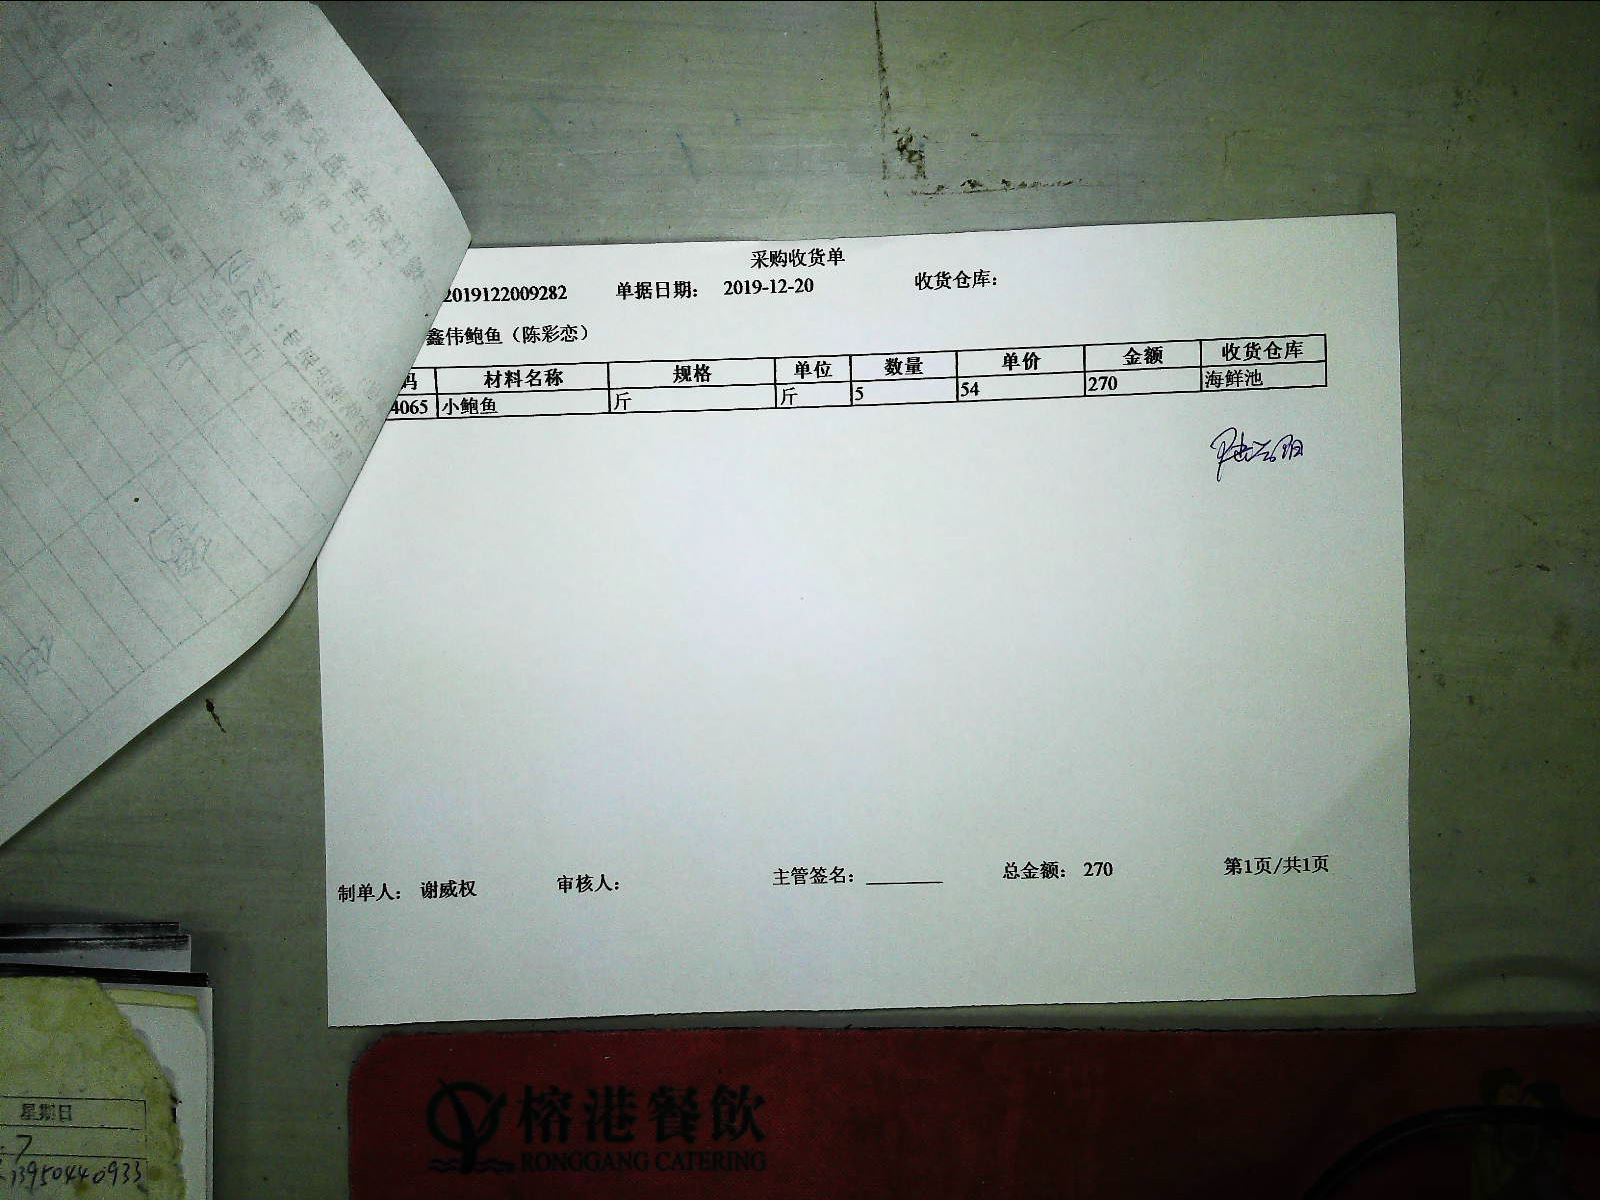 采购收货单
2019122009282 单据日期： 2019-12-20 收货仓库：
鑫伟鲍鱼（陈彩恋）
码 材料名称 规格 单位 数量 单价 金额 收货仓库
4065 小鲍鱼 斤 斤 5 54 270 海鲜池
制单人： 谢威权 审核人： 主管签名： 总金额： 270 第1页/共1页
榕港餐飲
RONGGANG CATERING
星期日
7
13950440933